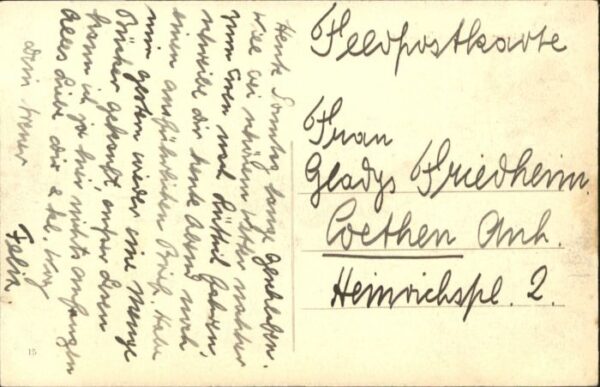 Feldpostkarte
Frau
Gladys Friedheim.
Coethen Anh.
Heinrichspl. 2.
Heute Sonntag lange geschlafen.
Will bei schönem Wetter nachher
zum Essen nach fahren,
schreibe dir heute Abend noch
einen ausführlichen Brief. Habe
mir gestern wieder eine Menge
Bücher gekauft, ausser Lesen
kann ich ja hier nichts anfangen
Alles Liebe dir & kl. Kay
Dein treuer
Felix
15